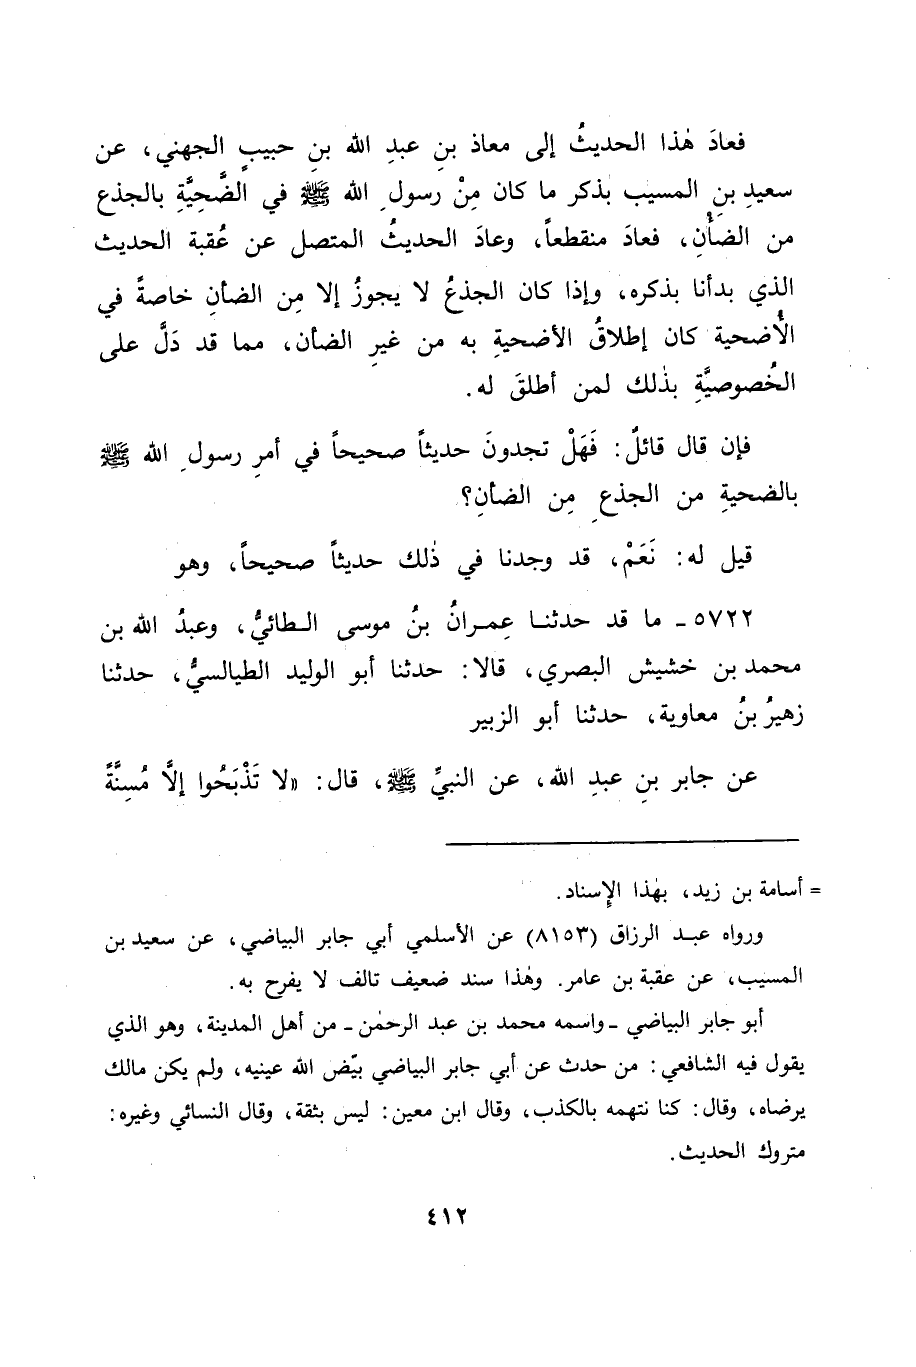 فعادَ هٰذا الحديثُ إلى معاذ بنِ عبدِ الله بنِ حبيبٍ الجهني، عن
سعيدِ بنِ المسيب بذكر ما كان مِنْ رسولِ الله ﷺ في الضَّحِيَّةِ بالجذع
من الضأْنِ، فعادَ منقطعاً، وعادَ الحديثُ المتصل عن عُقبة الحديث
الذي بدأنا بذكره، وإذا كان الجذعُ لا يجوزُ إلا مِن الضأنِ خاصةً في
الأُضحية كان إطلاقُ الأضحيةِ به من غيرِ الضأن، مما قد دَلَّ على
الخُصوصيَّةِ بذٰلك لمن أطلقَ له.
فإن قال قائلٌ: فَهَلْ تجدونَ حديثاً صحيحاً في أمرِ رسولِ الله ﷺ
بالضحيةِ من الجذعِ مِن الضأنِ؟
قيل له: نَعَمْ، قد وجدنا في ذٰلك حديثاً صحيحاً، وهو
٥٧٢٢ـ ما قد حدثنا عِمرانُ بنُ موسى الطائيُّ، وعبدُ الله بن
محمد بن خشيش البصري، قالا: حدثنا أبو الوليد الطيالسيُّ، حدثنا
زهيرُ بنُ معاوية، حدثنا أبو الزبير
عن جابر بنِ عبدِ الله، عن النبيِّ ﷺ، قال: «لا تَذْبَحُوا إلَّا مُسِنَّةً
= أسامة بن زيد، بهٰذا الإِسناد.
ورواه عبد الرزاق (٨١٥٣) عن الأسلمي أبي جابر البياضي، عن سعيد بن
المسيب، عن عقبة بن عامر. وهٰذا سند ضعيف تالف لا يفرح به.
أبو جابر البياضي ـ واسمه محمد بن عبد الرحمٰن ـ من أهل المدينة، وهو الذي
يقول فيه الشافعي: من حدث عن أبي جابر البياضي بيّض الله عينيه، ولم يكن مالك
يرضاه، وقال: كنا نتهمه بالكذب، وقال ابن معين: ليس بثقة، وقال النسائي وغيره:
متروك الحديث.
٤١٢